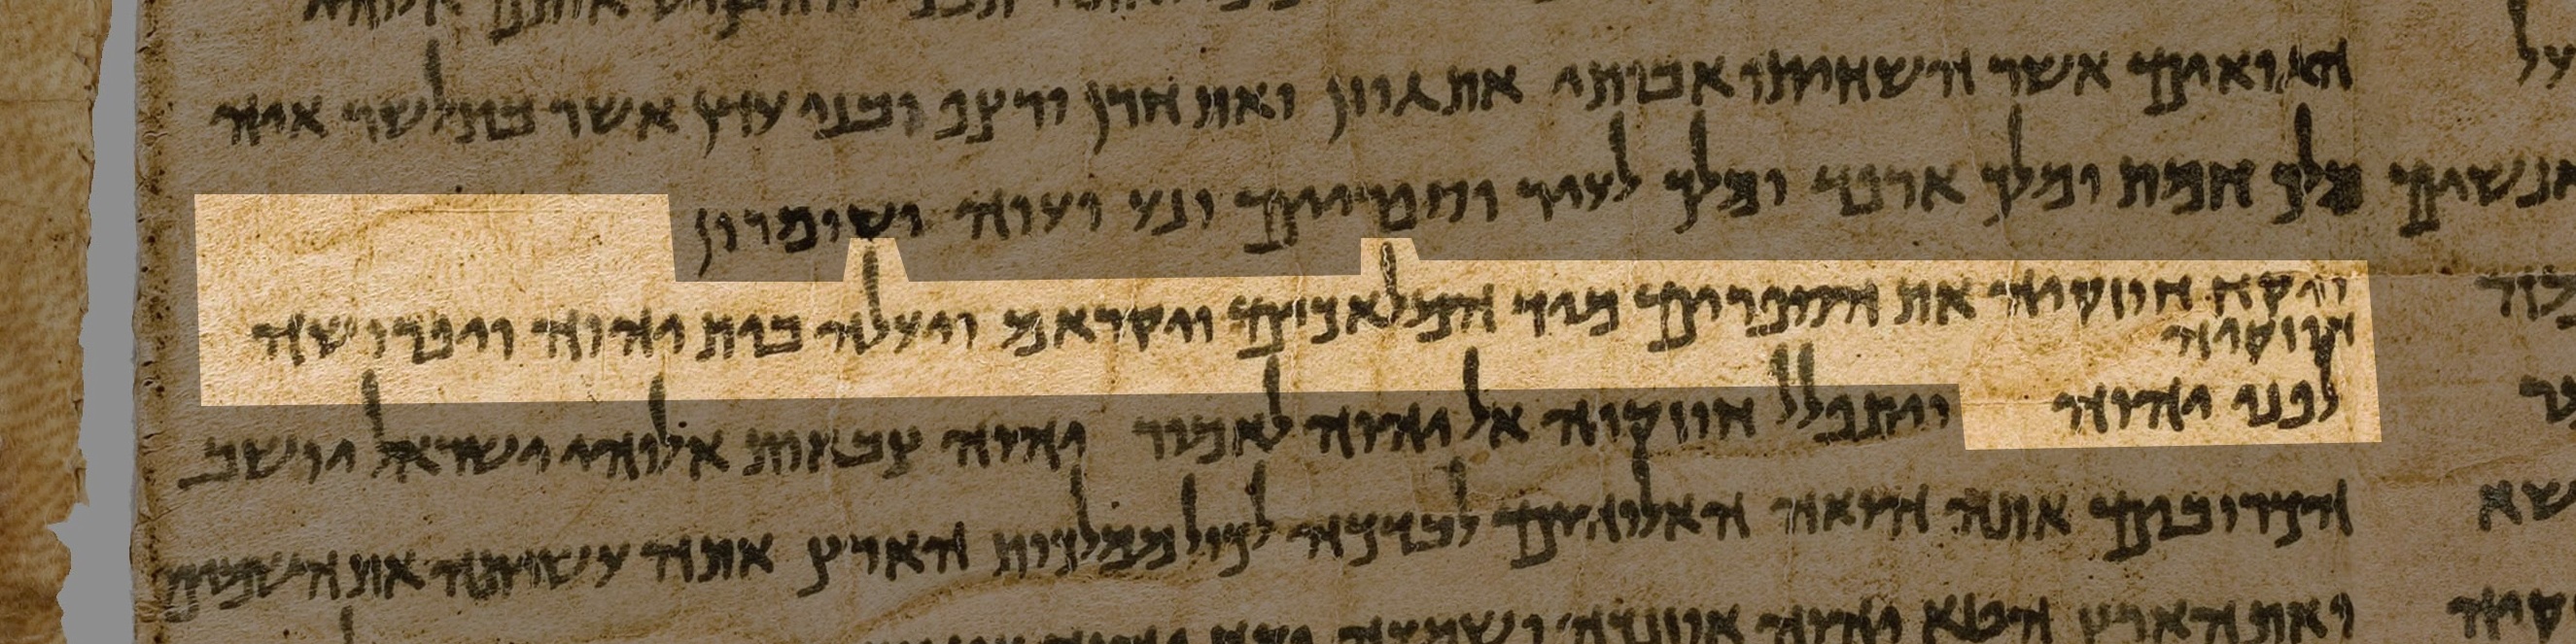 הגואים אשר השחיתו אבותי את גוזן ואת חרן ורצפ ובני עדן אשר בתלשר איה
מלך חמת ומלך ארפד ומלך לעיר וספריים ונע ועוה ושומרון
ויקח חיזקיה את הספרים מיד המלאכים ויקראם ויעלה בית יהוה ויפרושה
חיזקיה
לפני יהוה ויתפלל חיזקיה אל יהוה לאמור יהוה צבאות אלוהי ישראל יושב
הכרובים אתה היאה האלוהים לבדכה לכול ממלכות הארץ אתה עשיתה את השמים
ואת הארץ הטא יהוה אוזנכה ושמעה